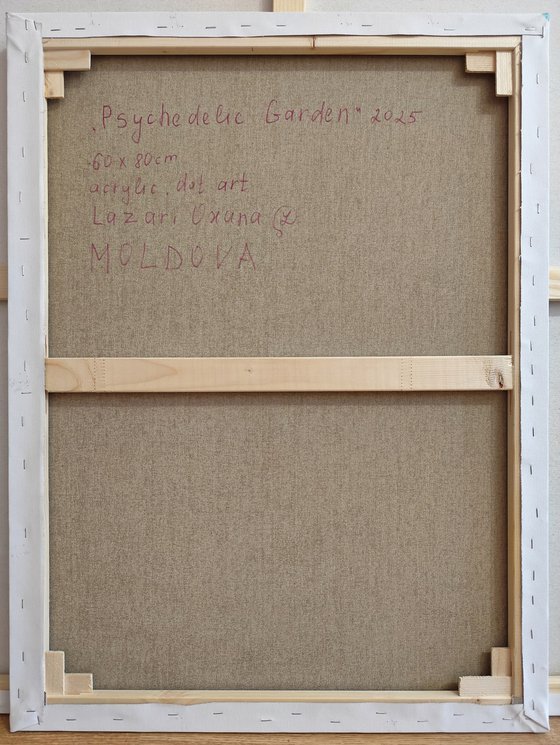 „Psychedelic Garden" 2025
60 x 80 cm
acrylic, dot art
Lazari Oxana
MOLDOVA